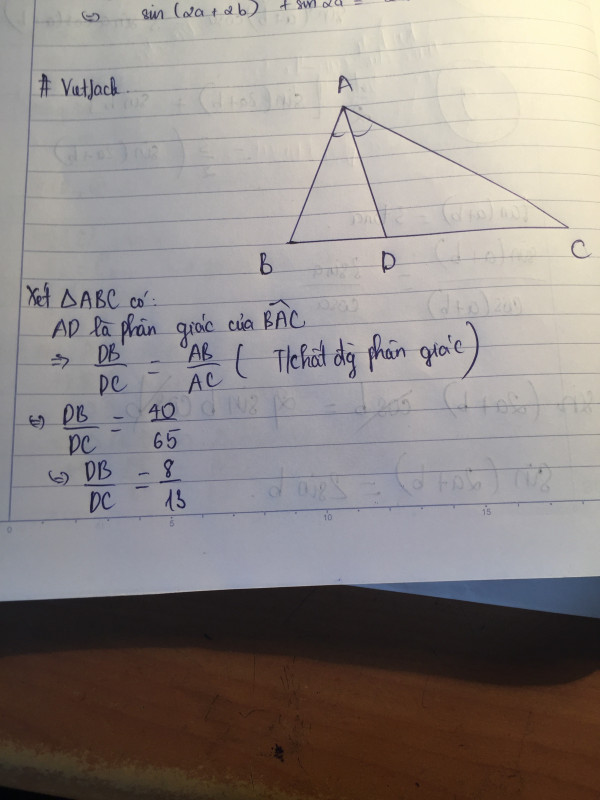 ⇔ sin (2a+2b) + sin 2a =
# VietJack.
A
B
D
C
Xét △ABC có:
AD là phân giác của BAC
⇒ DB/DC = AB/AC ( T/chất đg phân giác)
⇔ DB/DC = 40/65
⇔ DB/DC = 8/13
0 5 10 15